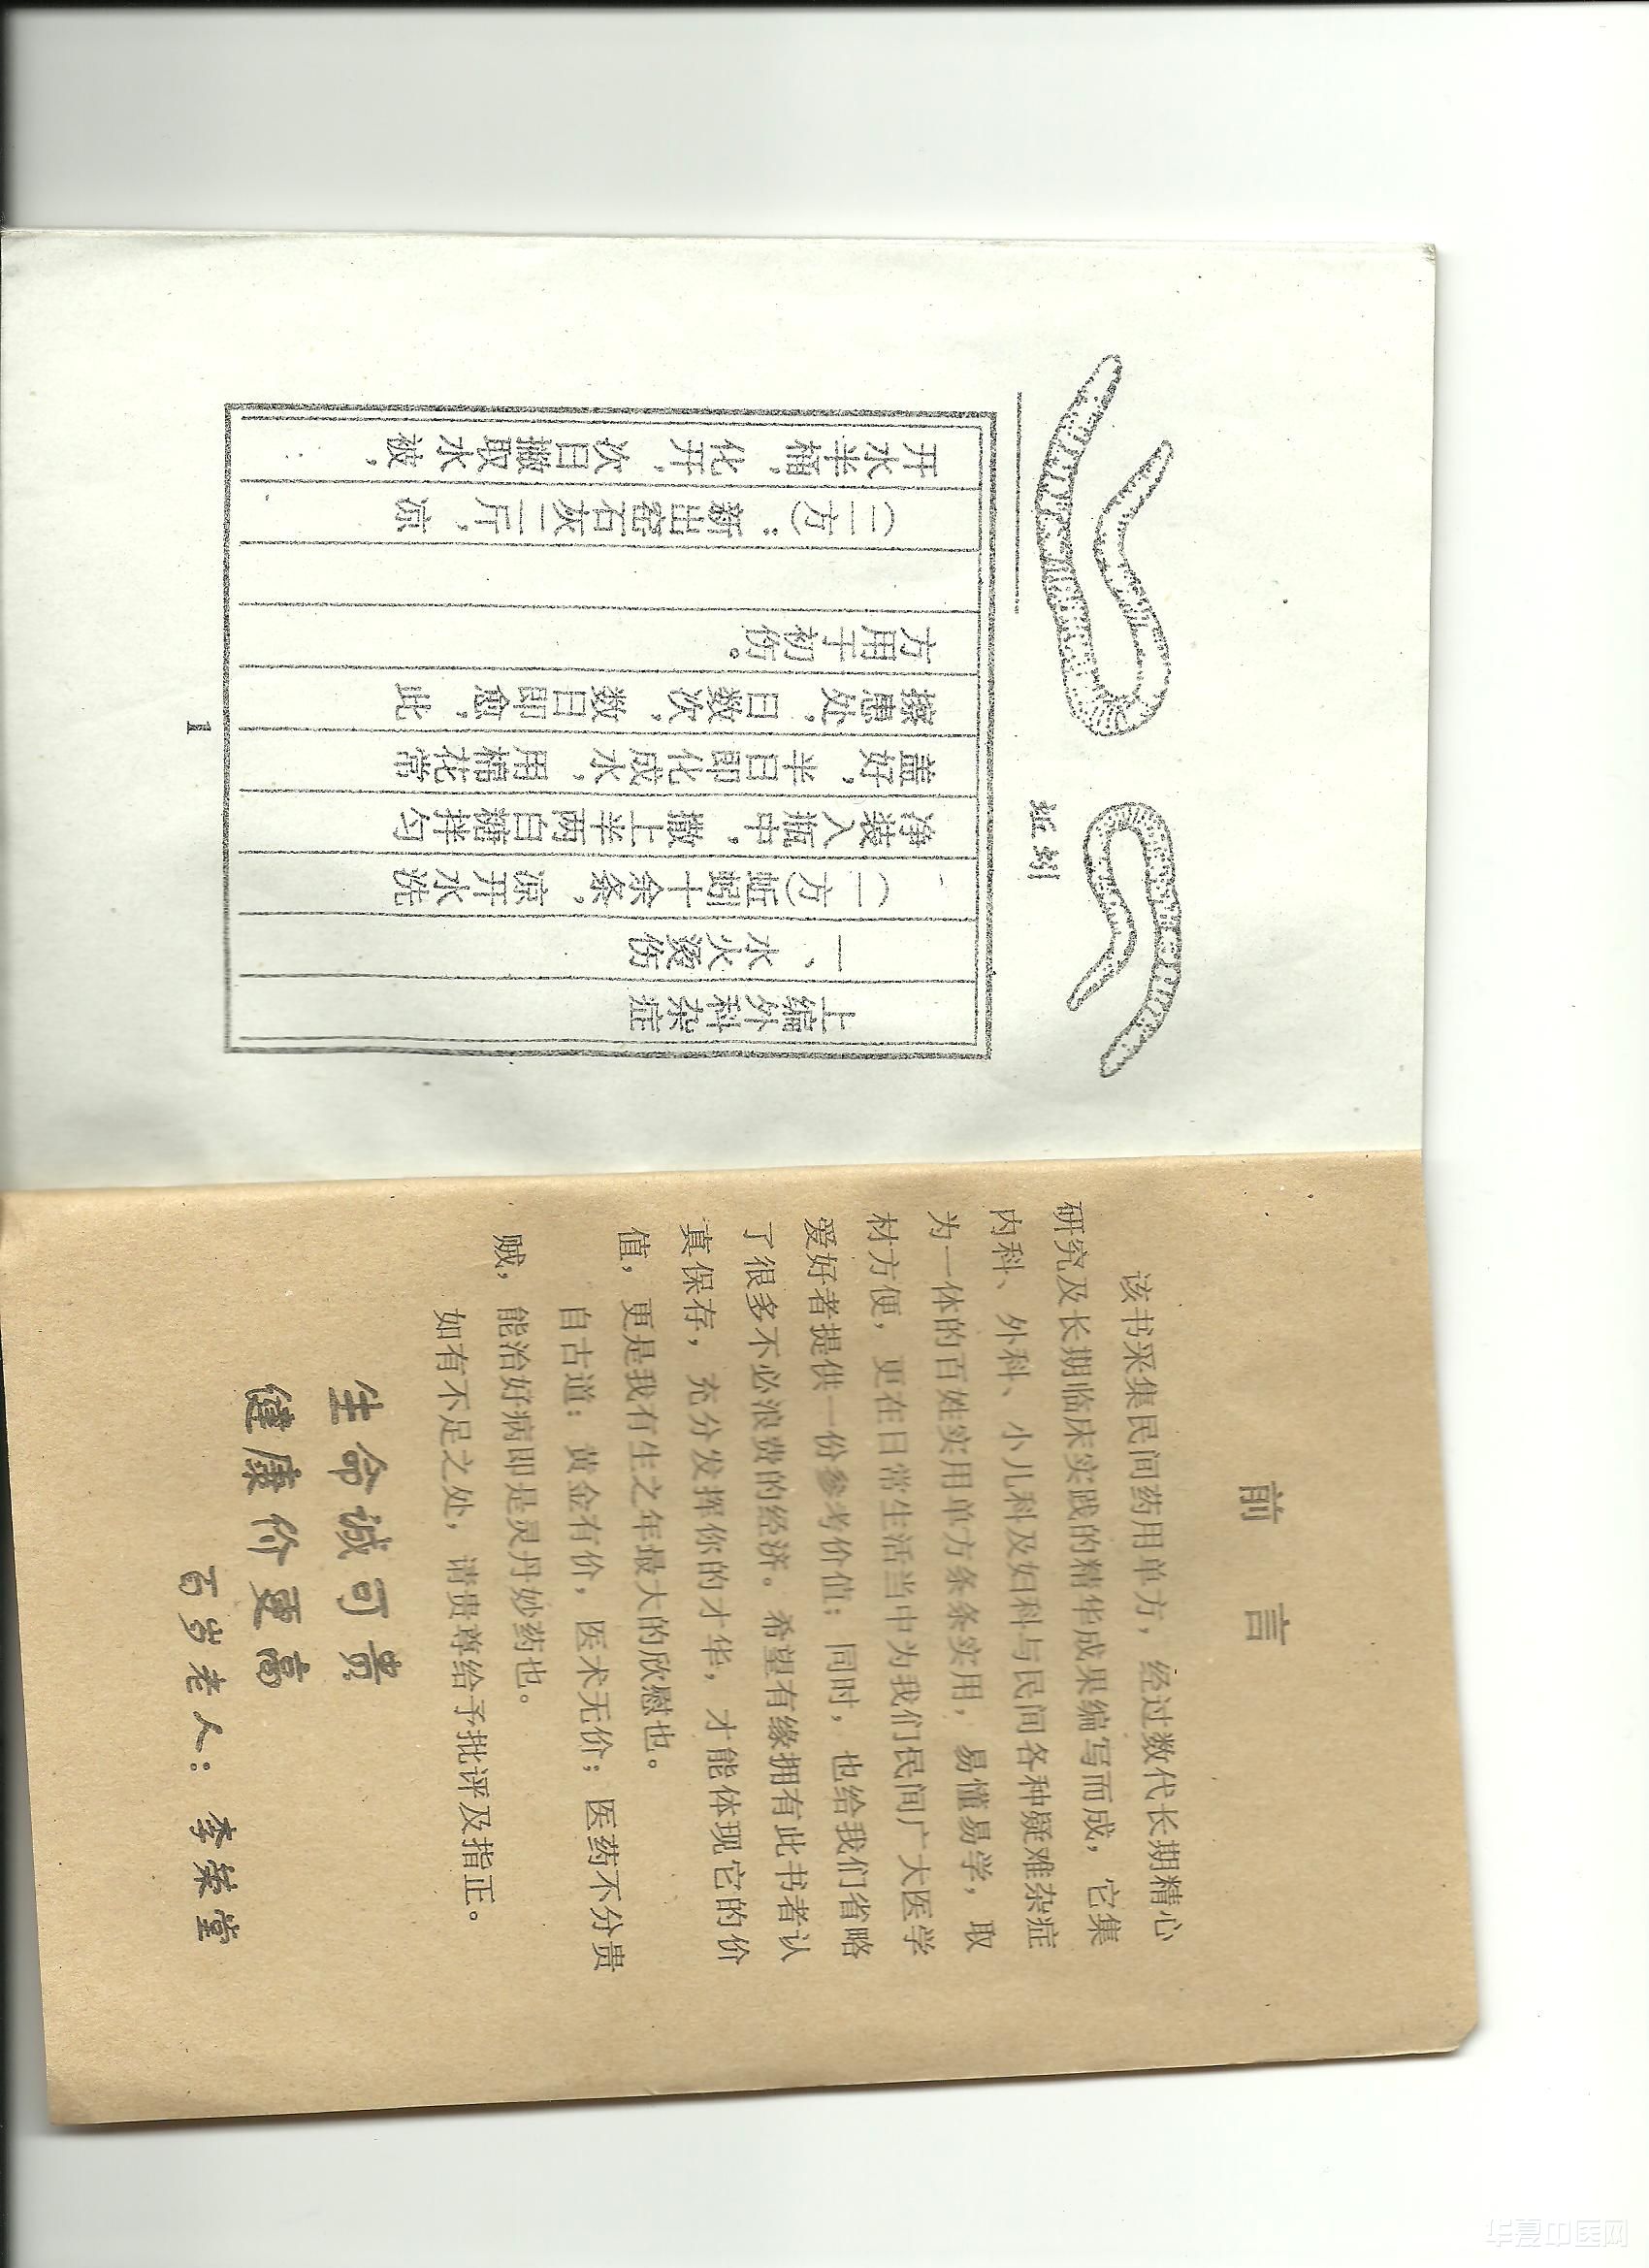 前 言
该书采集民间药用单方，经过数代长期精心
研究及长期临床实践的精华成果编写而成，它集
内科、外科、小儿科及妇科与民间各种疑难杂症
为一体的百姓实用单方条条实用，易懂易学，取
材方便，更在日常生活当中为我们民间广大医学
爱好者提供一份参考价值；同时，也给我们省略
了很多不必浪费的经济。希望有缘拥有此书者认
真保存，充分发挥你的才华，才能体现它的价
值，更是我有生之年最大的欣慰也。
自古道：黄金有价，医术无价；医药不分贵
贼，能治好病即是灵丹妙药也。
如有不足之处，请贵尊给予批评及指正。
生命诚可贵
健康价更高
百岁老人：李英堂
蚯蚓
上编外科杂症
一、水火烫伤
（一方）蚯蚓十余条，凉开水洗
净装入瓶中，撒上半两白糖拌匀
盖好，半日即化成水，用棉花常
擦患处，日数次，数日即愈，此
方用于初伤。
（二方）：新出窑石灰二斤，凉
开水半桶，化开，次日撇取水被，
1
华夏中医网